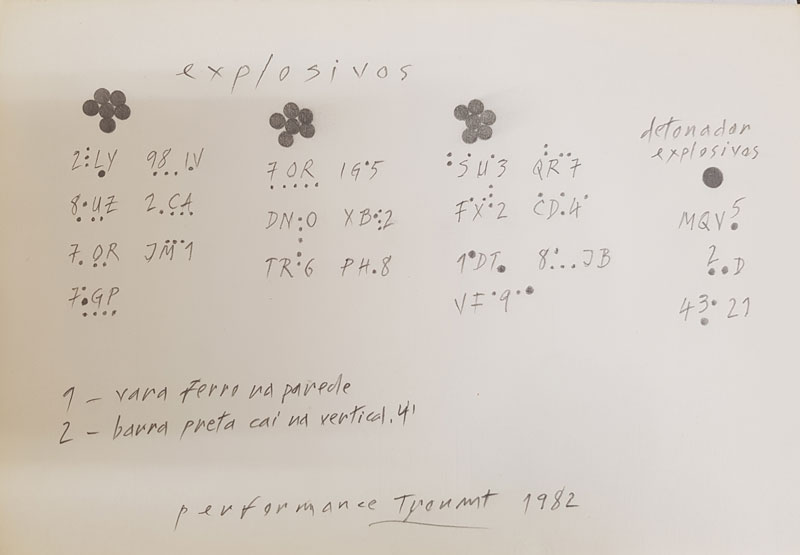 explosivos
2:LY 98...IV
8.UZ 2.CA
7.OR JM1
7.GP
7 OR 1G5
DN:0 XB:2
TR:6 PH.8
SU3 QR7
FX2 CD.4
1DT. 8...JB
VF9
detonador
explosivos
MQV5
2..D
43 21
1 – vara ferro na parede
2 – barra preta cai na vertical. 4'
performance 1982